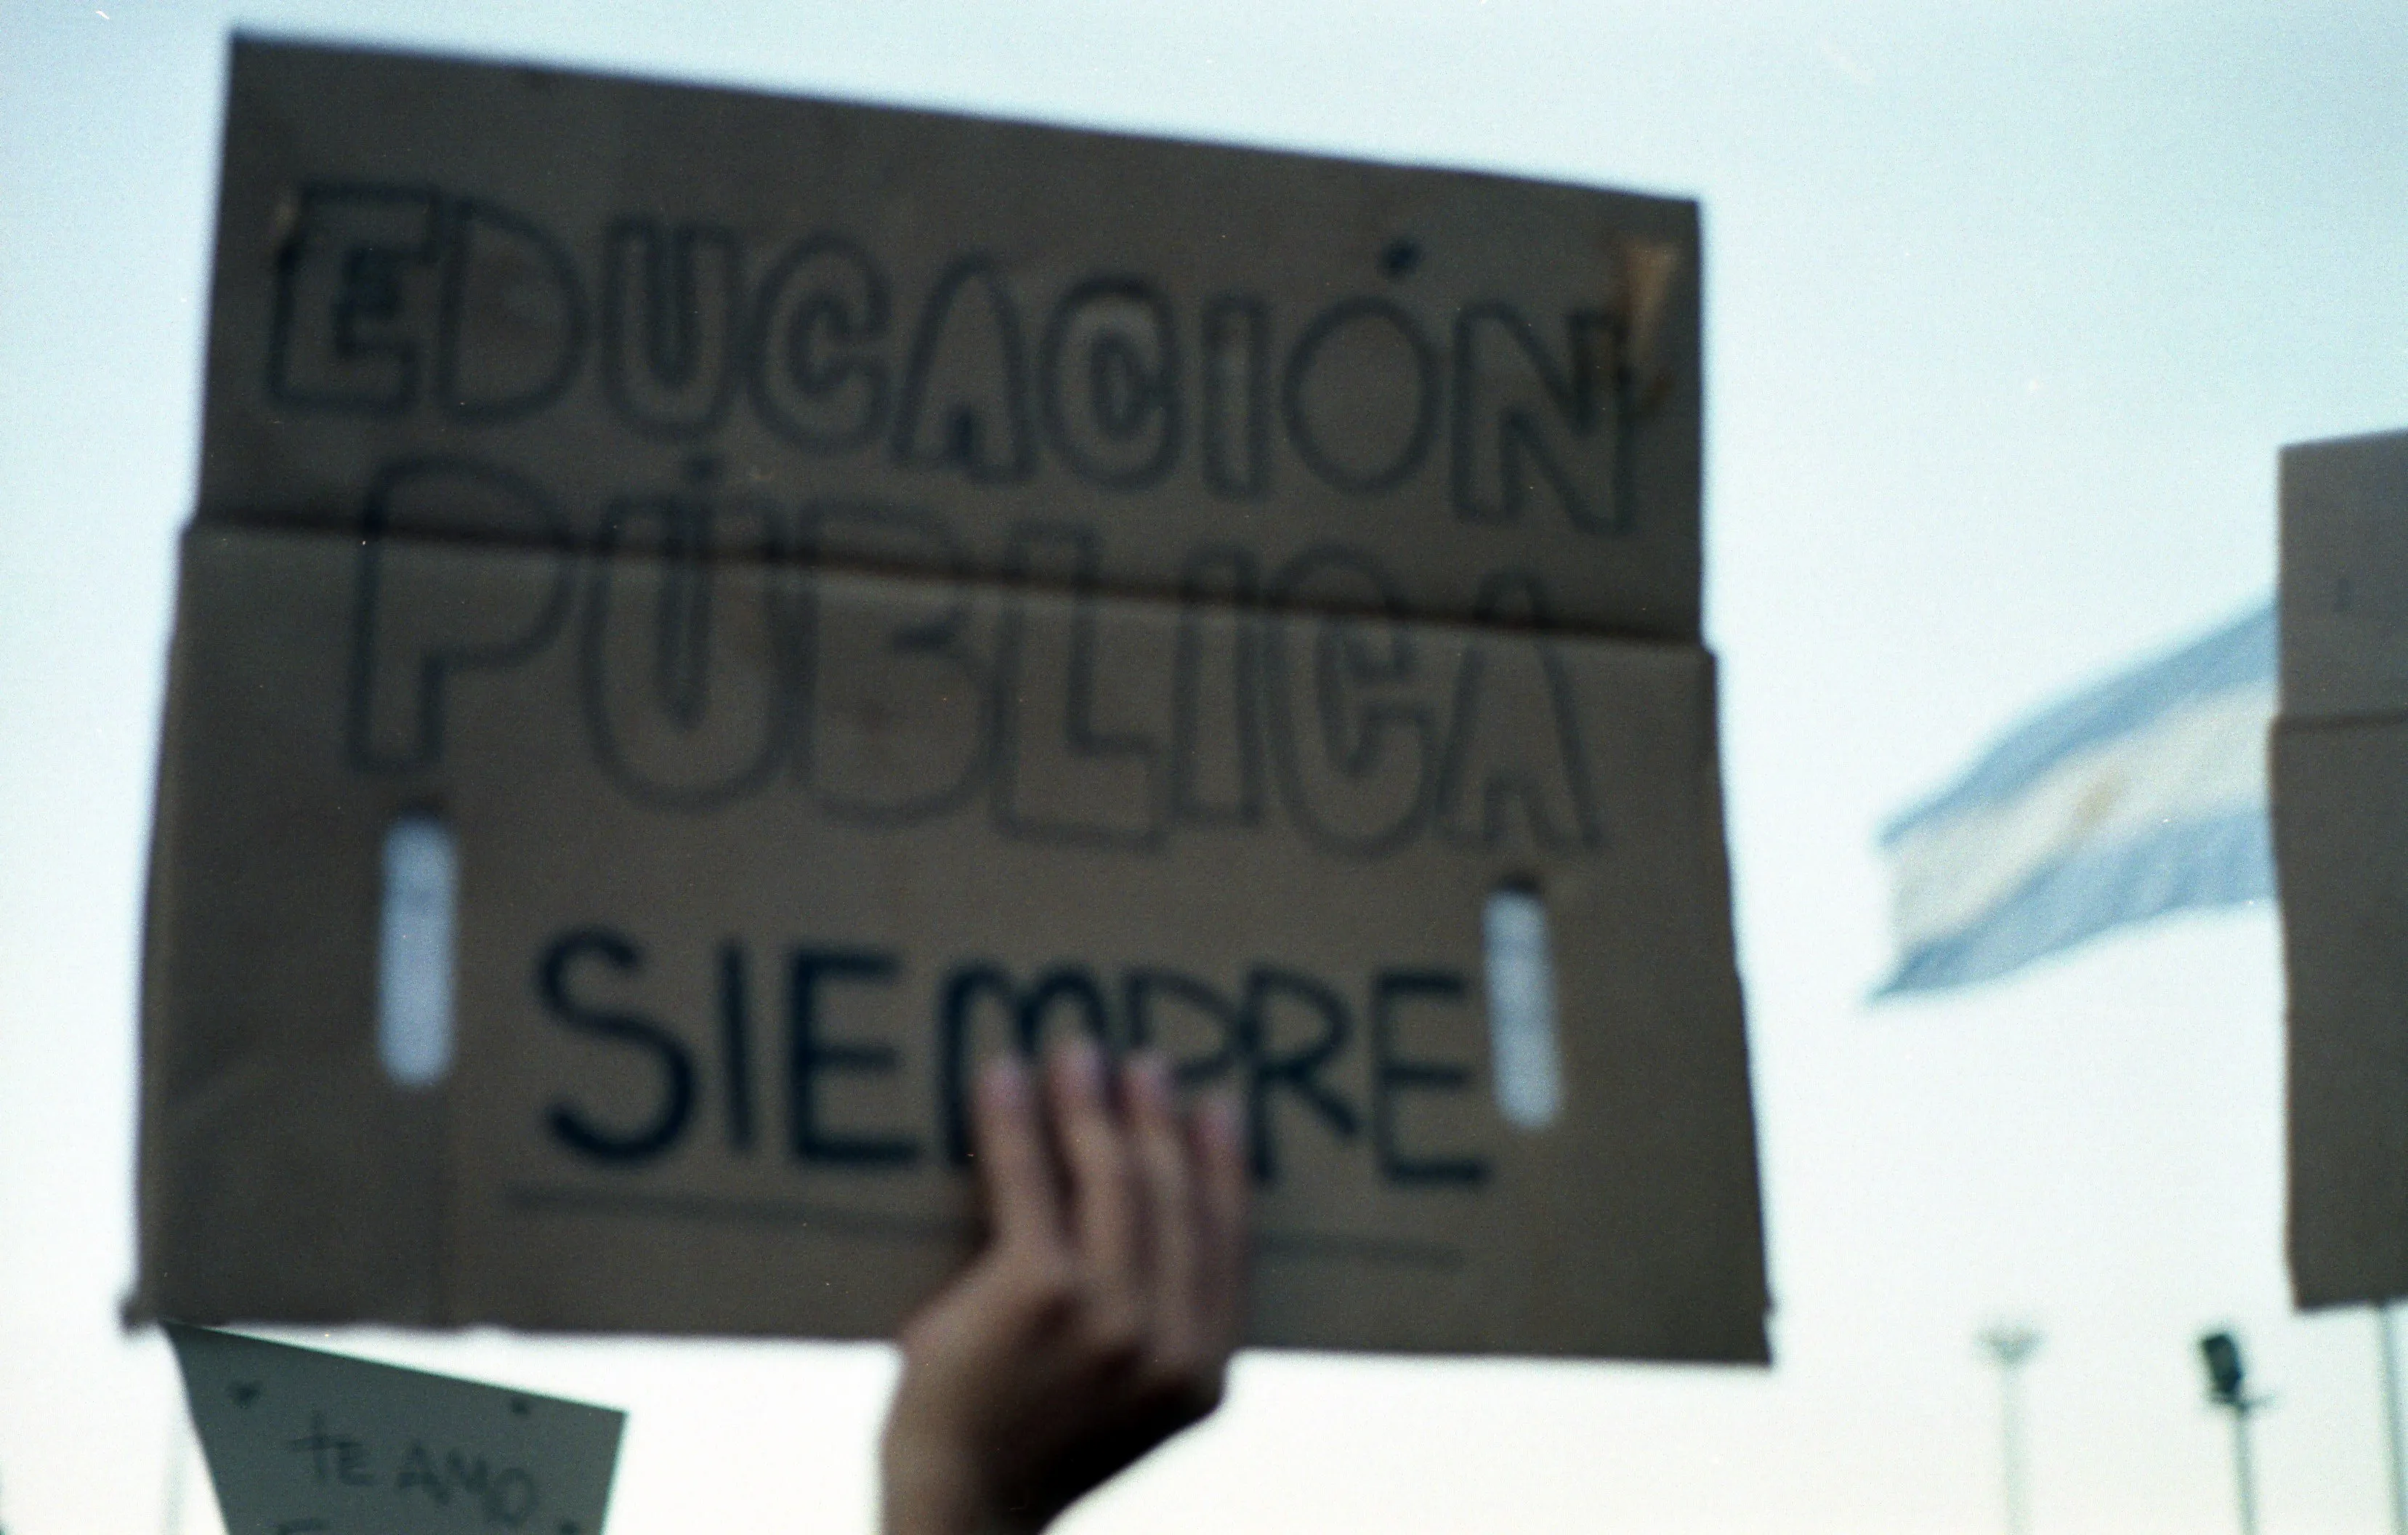 EDUCACIÓN
PÚBLICA
SIEMPRE
TE AMO